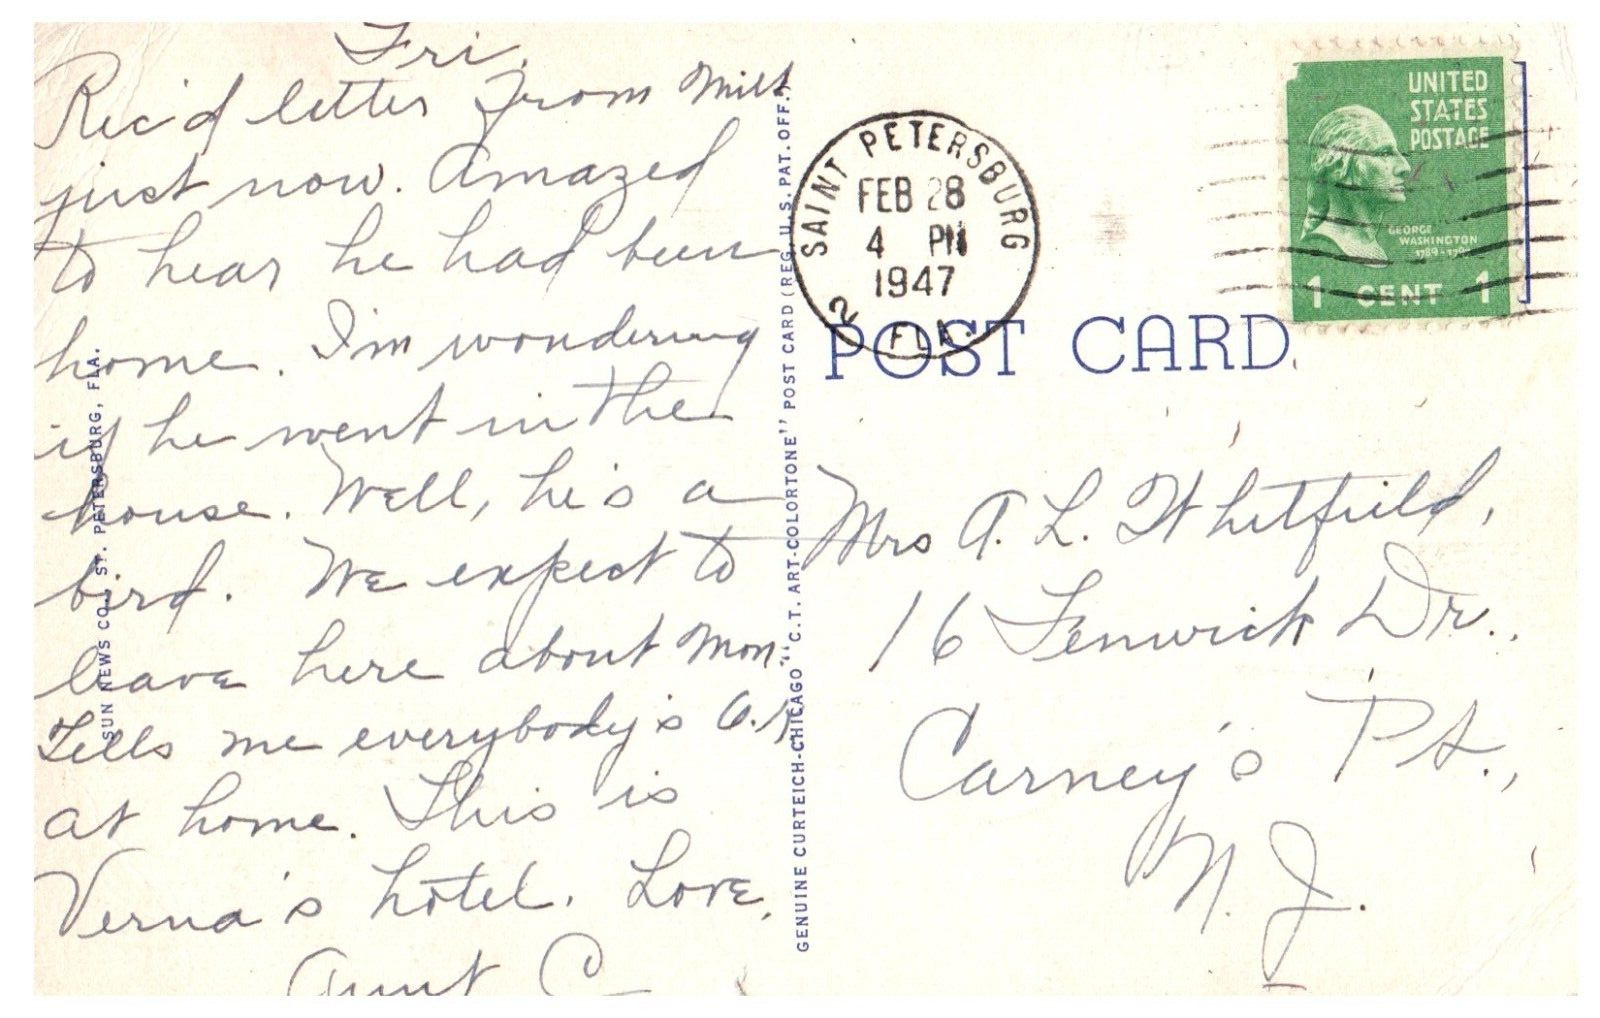 Fri.
Rec'd letter from Milt
just now. Amazed
to hear he had been
home. I'm wondering
if he went in the
house. Well, he's a
bird. We expect to
leave here about Mon.
Tells me everybody's O.K.
at home. This is
Verna's hotel. Love,
Aunt C
SUN NEWS CO., ST. PETERSBURG, FLA.
GENUINE CURTEICH-CHICAGO "C.T. ART-COLORTONE" POST CARD (REG. U.S. PAT. OFF.)
SAINT PETERSBURG
FEB 28
4 PM
1947
2 FLA.
UNITED
STATES
POSTAGE
GEORGE
WASHINGTON
1 CENT 1
POST CARD
Mrs A. L. Whitfield,
16 Fenwick Dr.,
Carney's Pt.,
N. J.